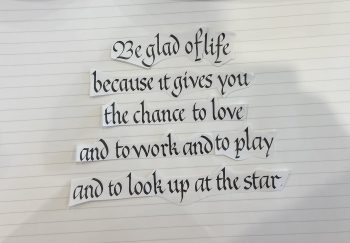 Be glad of life
because it gives you
the chance to love
and to work and to play
and to look up at the star.